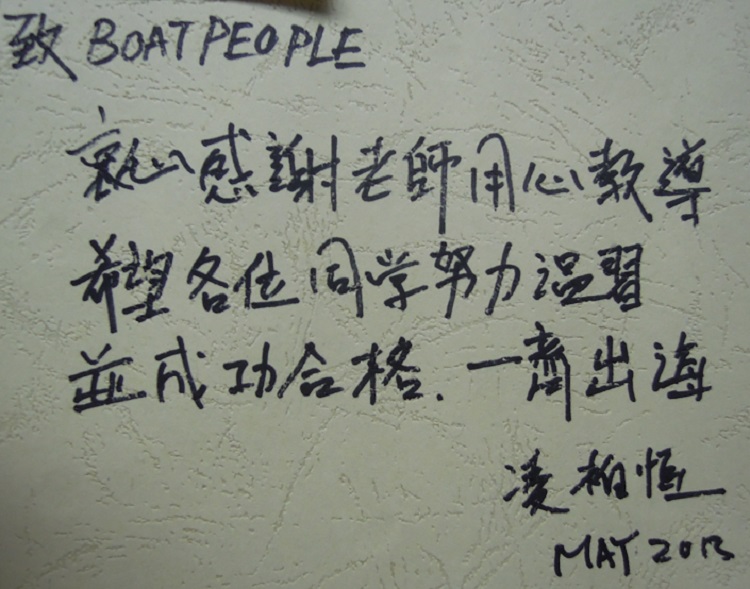 致 BOAT PEOPLE
衷心感謝老師用心教導
希望各位同学努力温習
並成功合格.一齊出海
凌柏恒
MAY 2013